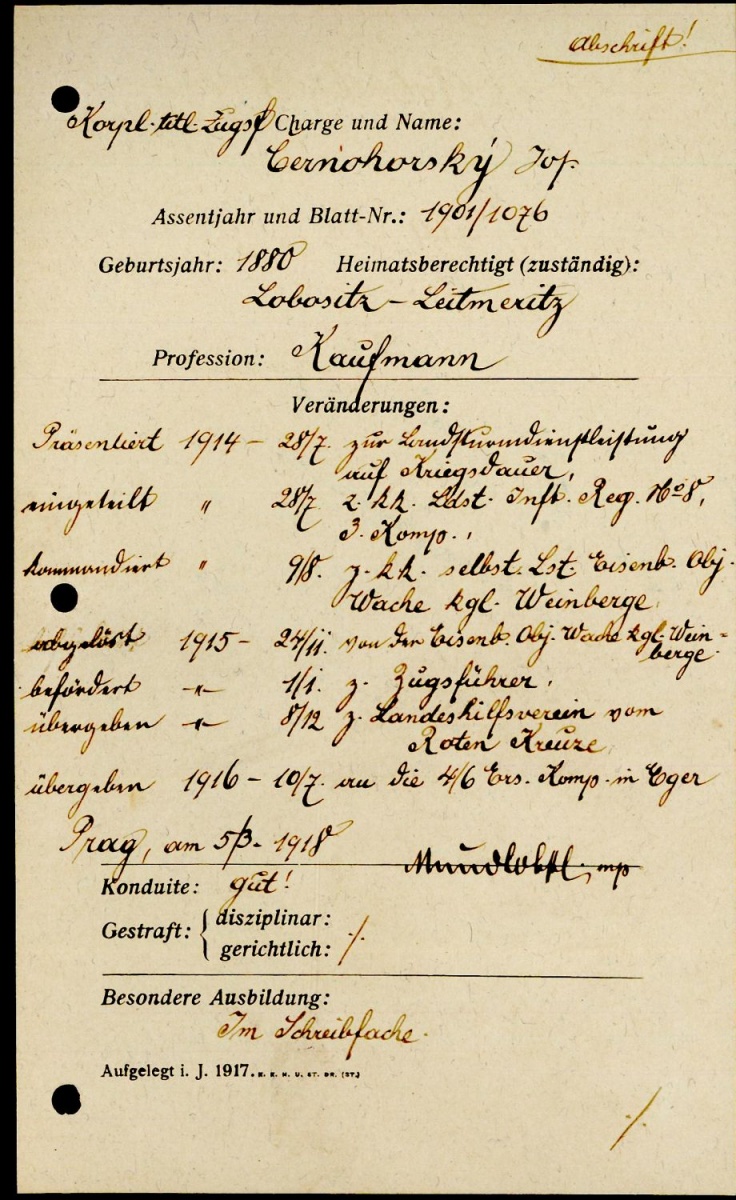 Abschrift!
Korpl. titl. Zugsf Charge und Name:
Černohorský Jos.
Assentjahr und Blatt-Nr.: 1901/1076
Geburtsjahr: 1880 Heimatsberechtigt (zuständig):
Lobositz – Leitmeritz
Profession: Kaufmann
Veränderungen:
Präsentiert 1914 – 28/7. zur Landsturmdienstleistung
auf Kriegsdauer,
eingeteilt " 28/7 z. kk. Ldst. Inft. Reg. No 8,
3. Komp.,
kommandiert " 9/8. z. kk. selbst. Lst. Eisenb. Obj.
Wache kgl. Weinberge,
abgelöst 1915 – 24/11. von der Eisenb. Obj. Wache kgl. Wein-
berge.
befördert -"- 1/1. z. Zugsführer,
übergeben -"- 8/12 z. Landeshilfsverein vom
Roten Kreuze,
übergeben 1916 – 10/7. an die 4/6 Ers. Komp. in Eger
Prag, am 5/3. 1918
mp
Konduite: gut!
Gestraft: { disziplinar:
gerichtlich: ./.
Besondere Ausbildung:
Im Schreibfache.
Aufgelegt i. J. 1917. K. K. H. U. ST. DR. (ST.)
./.